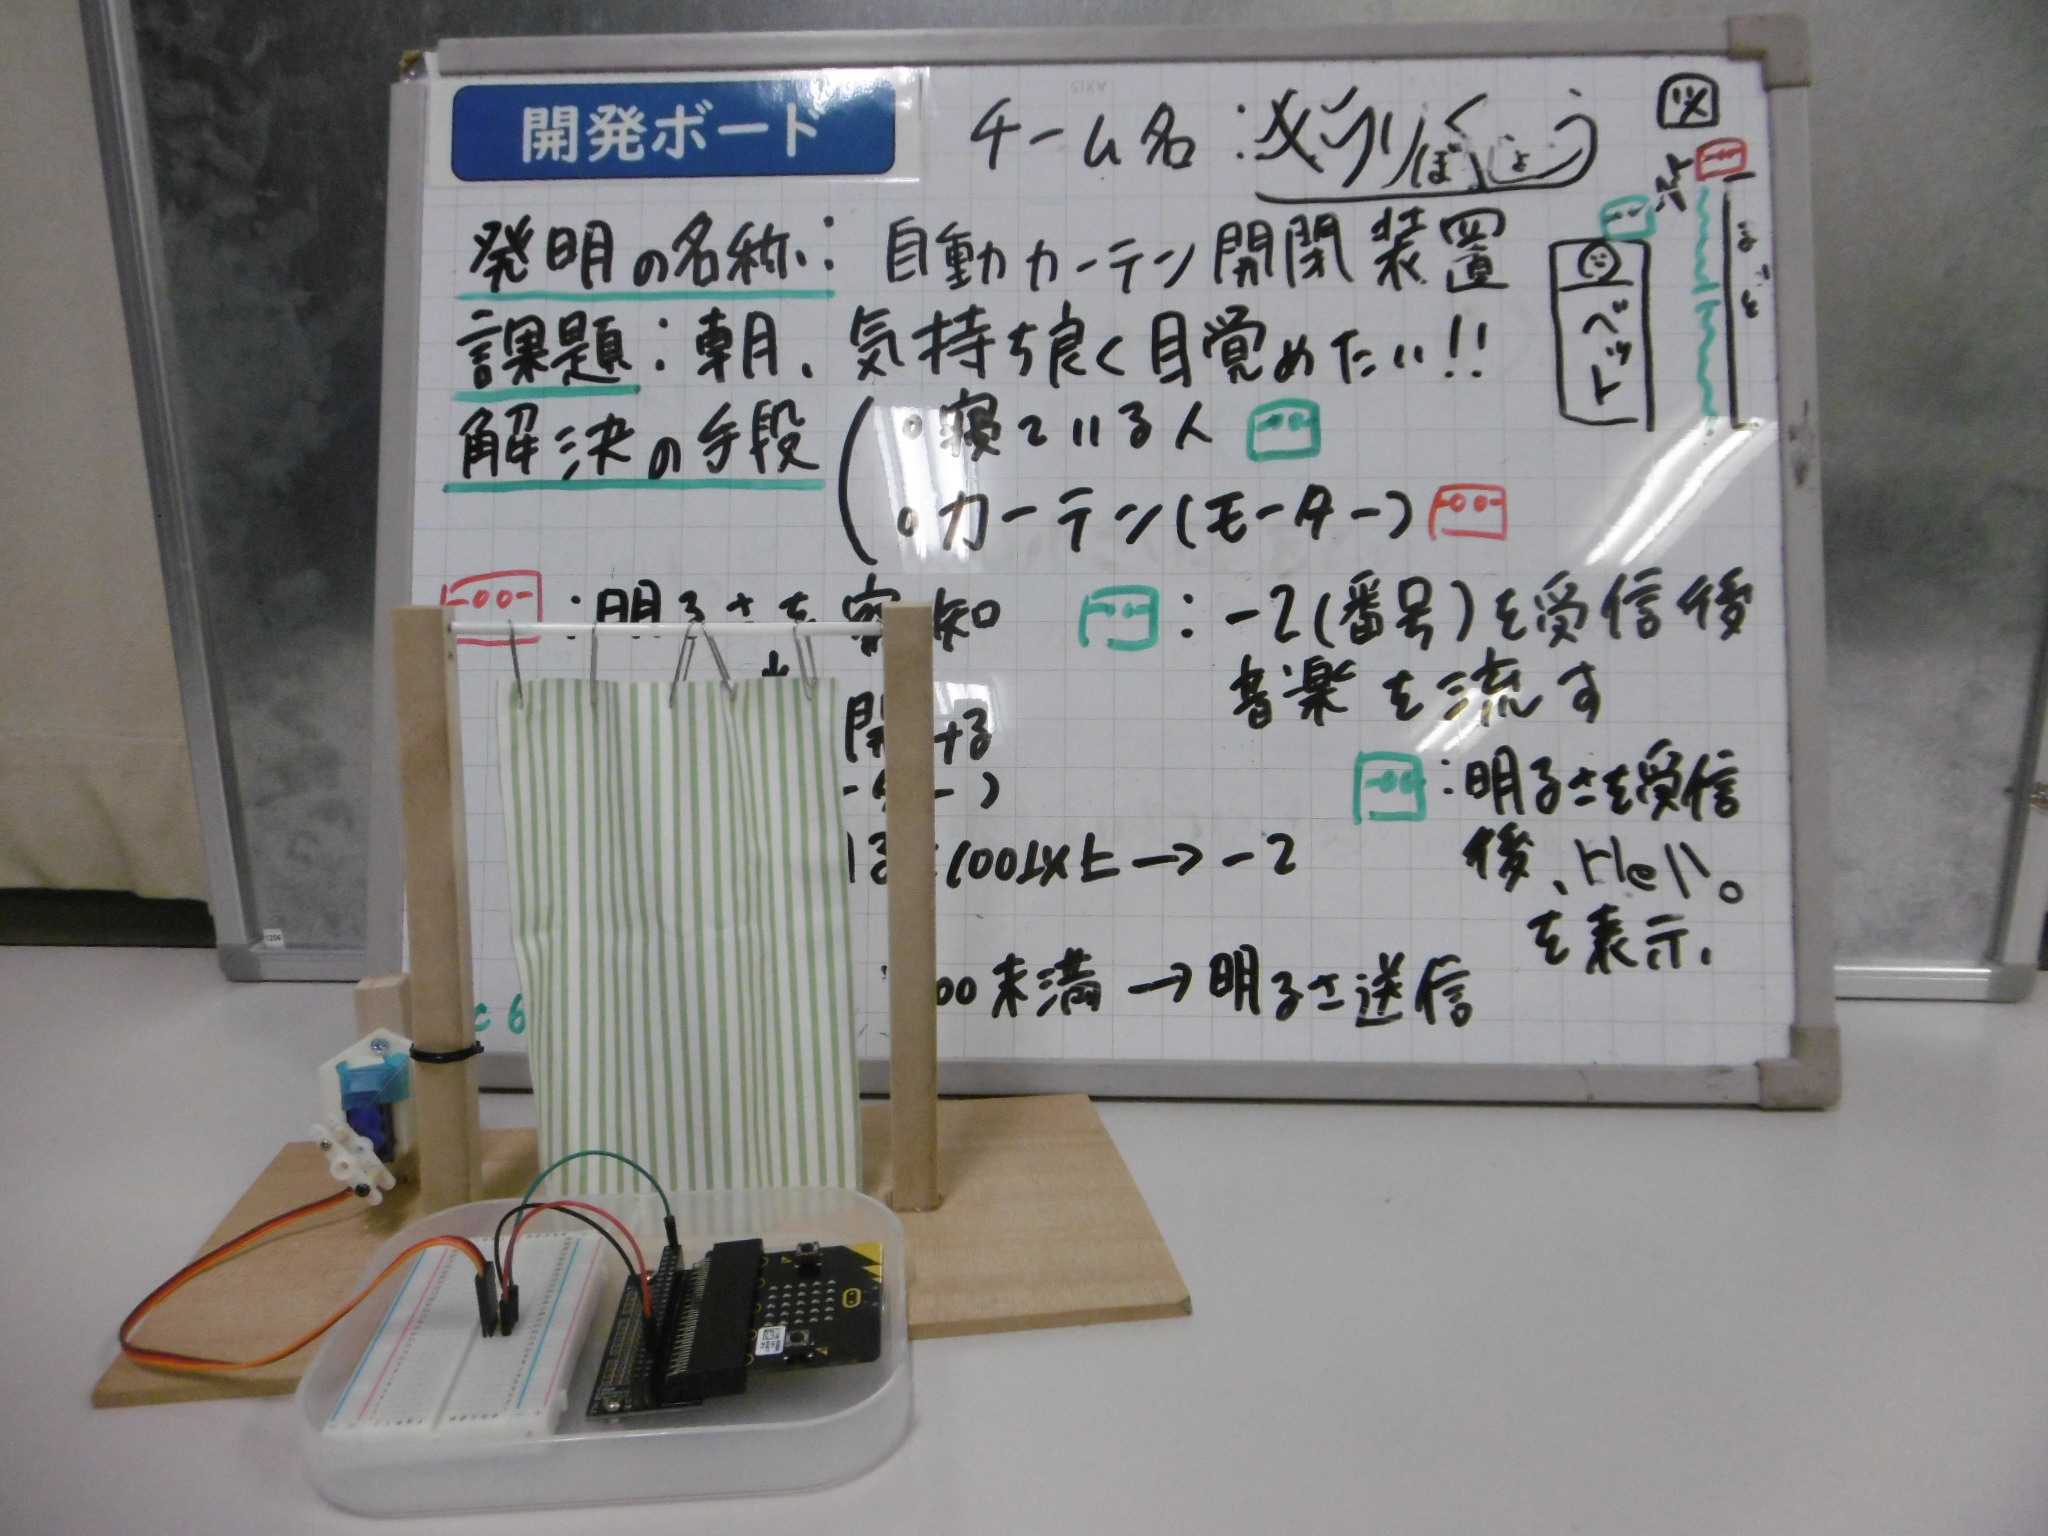 開発ボード
チーム名:
発明の名称: 自動カーテン開閉装置
まど
課題:朝、気持ち良く目覚めたい!!
ベット
解決の手段
・寝ている人
・カーテン(モーター)
:明るさを察知
↓
開ける
ーター)
100以上→-2
00未満→明るさ送信
:-2(番号)を受信後
音楽を流す
:明るさを受信
後、Hello
を表示.